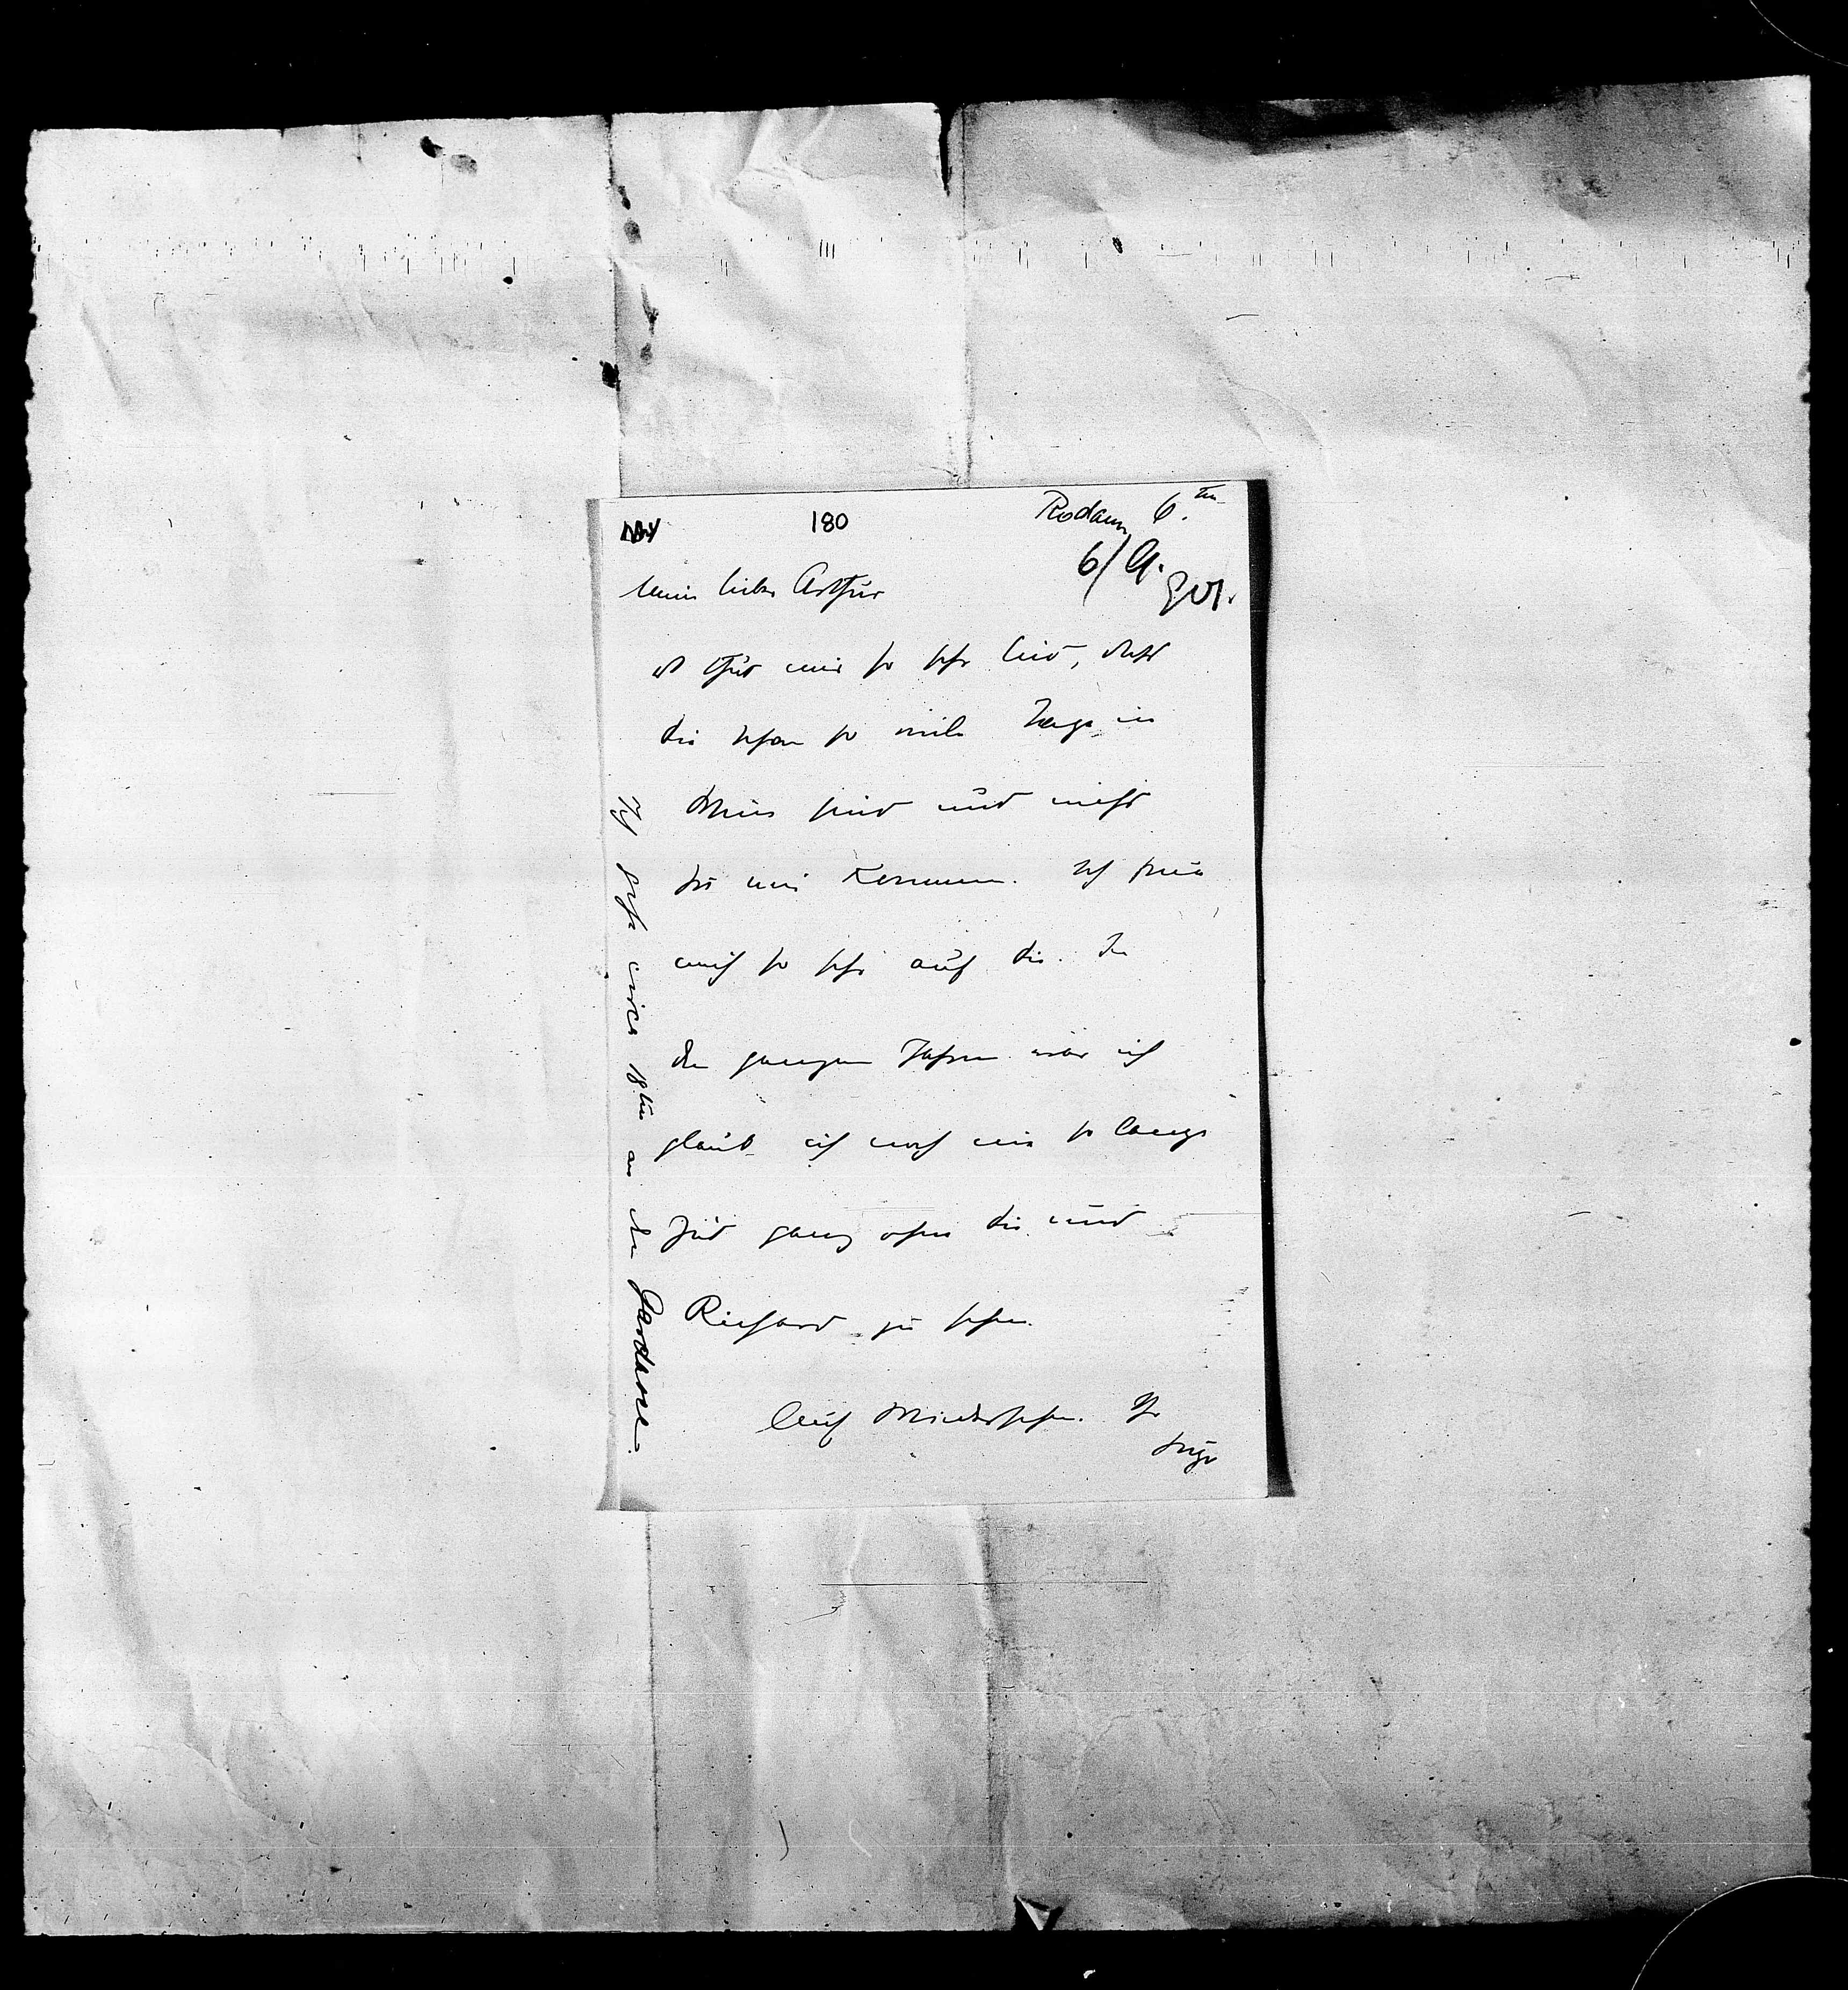 180
Rodaun 6.ten
6/9. 901.
Mein lieber Arthur
es thut mir so sehr leid, dass
Sie schon so viele Tage in
Wien sind und nicht
zu mir kommen. Ich freue
mich so sehr auf Sie. In
den ganzen Jahren war ich
glaub ich noch nie so lange
Zeit ganz ohne Sie und
Richard zu sehen.
Auf Wiedersehen. Ihr
Hugo
Ich gehe circa 18ten an den Gardasee.